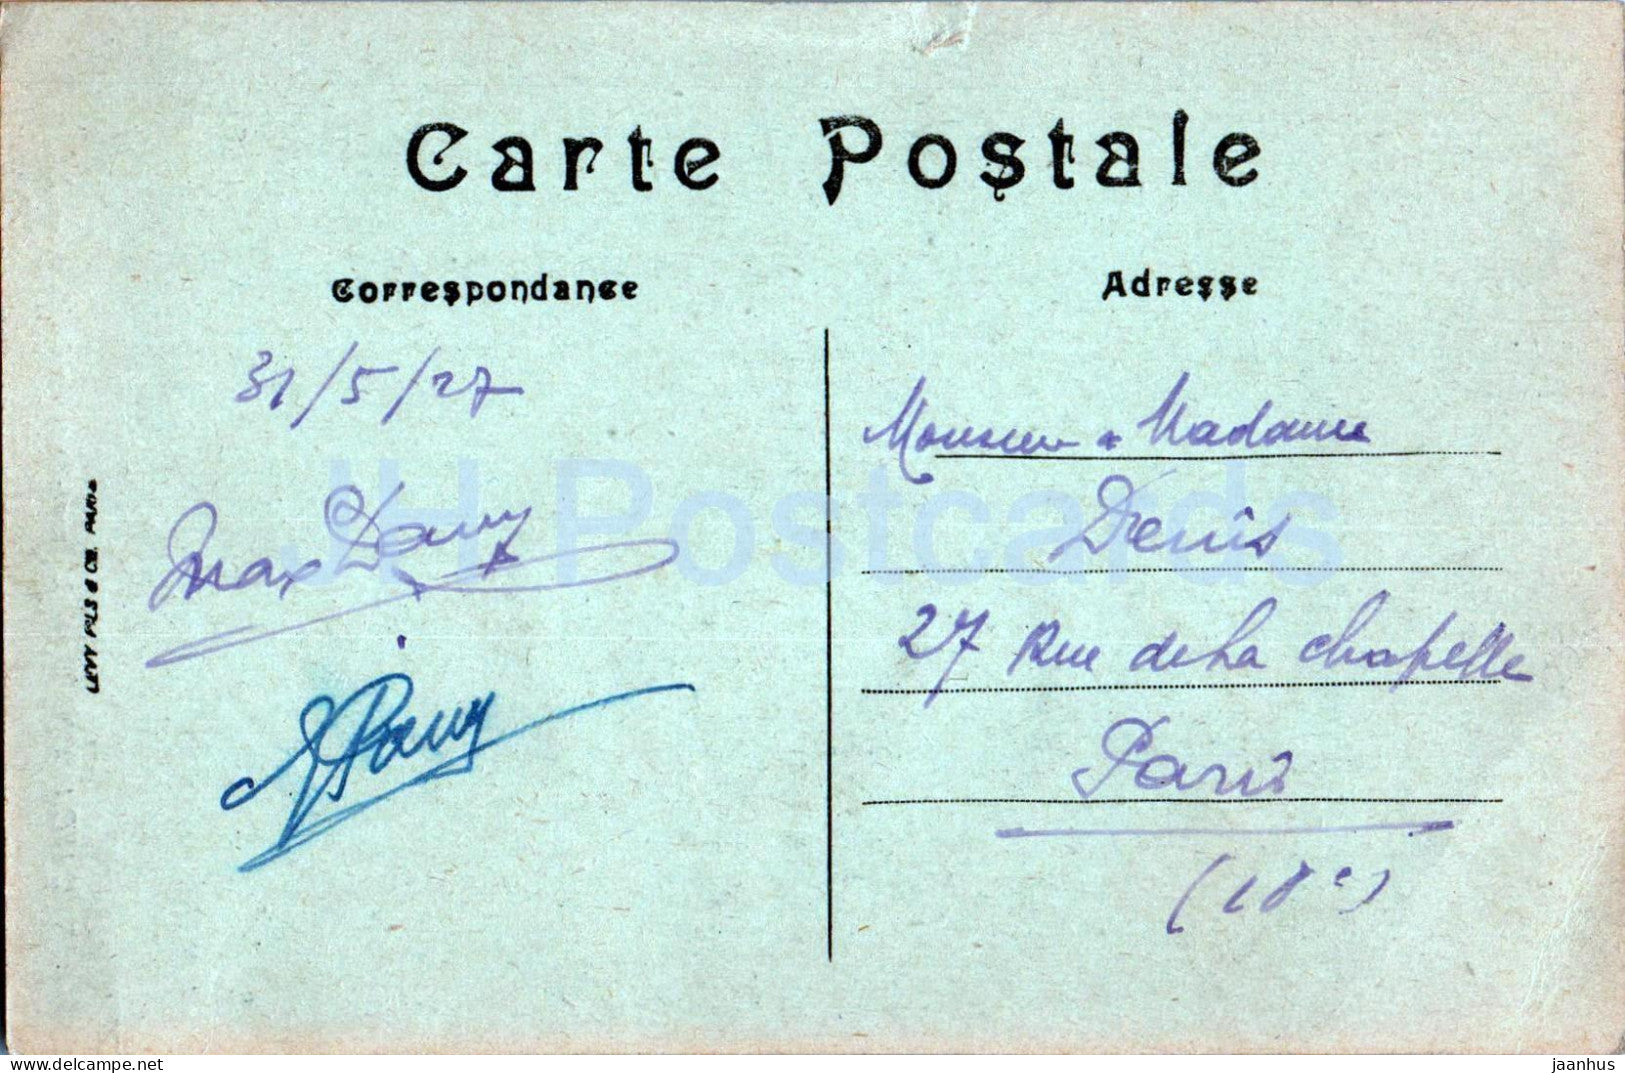 Carte Postale
Correspondance
31/5/27
Max Dany
Dany
LEVY FILS & CIE. PARIS
Adresse
Monsieur & Madame
Denis
27 Rue de la Chapelle
Paris
(18e)
JH Postcards
delcampe.net
jaanhus